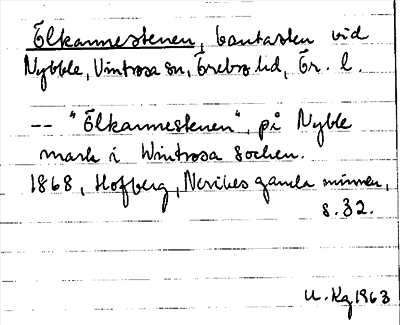 Ölkannestenen, bautasten vid
Nybble, Vintrosa sn, Örebro hd, Ör. l.
-- "Ölkannestenen", på Nyble
mark i Wintrosa Socken.
1868, Hofberg, Nerikes gamla minnen,
s. 32.
U. Kg 1963